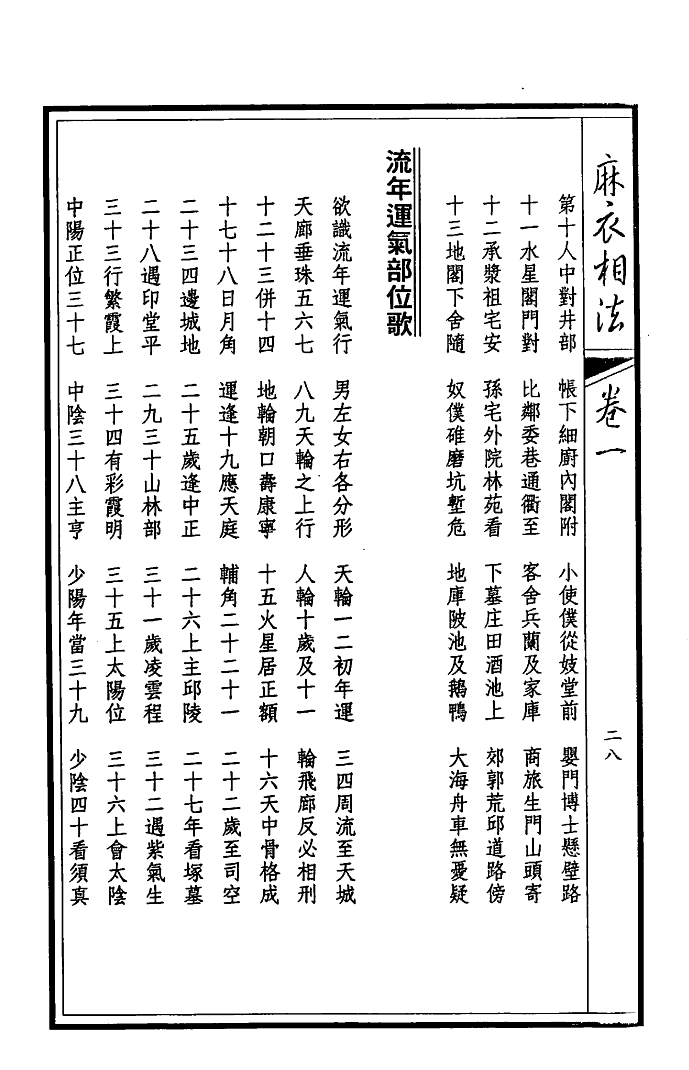 麻衣相法 卷一 二八
第十人中對井部 帳下細廚內閣附 小使僕從妓堂前 嬰門博士懸壁路
十一水星閣門對 比鄰委巷通衢至 客舍兵蘭及家庫 商旅生門山頭寄
十二承漿祖宅安 孫宅外院林苑看 下墓庄田酒池上 郊郭荒邱道路傍
十三地閣下舍隨 奴僕碓磨坑塹危 地庫陂池及鵝鴨 大海舟車無憂疑
流年運氣部位歌
欲識流年運氣行 男左女右各分形 天輪一二初年運 三四周流至天城
天廊垂珠五六七 八九天輪之上行 人輪十歲及十一 輪飛廊反必相刑
十二十三併十四 地輪朝口壽康寧 十五火星居正額 十六天中骨格成
十七十八日月角 運逢十九應天庭 輔角二十二十一 二十二歲至司空
二十三四邊城地 二十五歲逢中正 二十六上主邱陵 二十七年看塚墓
二十八遇印堂平 二九三十山林部 三十一歲凌雲程 三十二遇紫氣生
三十三行繁霞上 三十四有彩霞明 三十五上太陽位 三十六上會太陰
中陽正位三十七 中陰三十八主亨 少陽年當三十九 少陰四十看須真